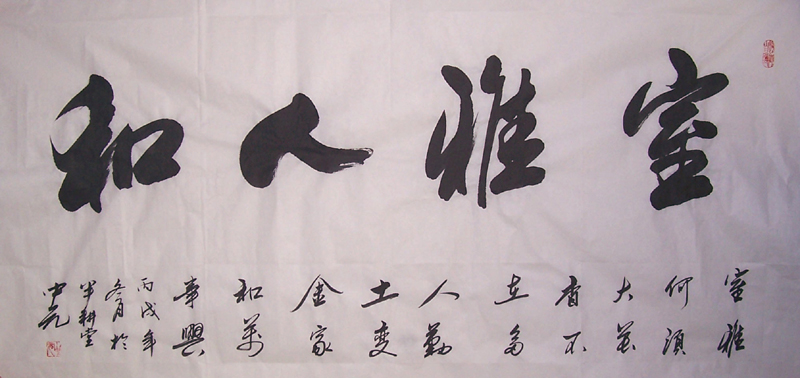 室雅人和
室雅
何須
大花
香不
在多
人勤
土变
金家
和萬
事興
丙戌年
冬月於
半耕堂
中元